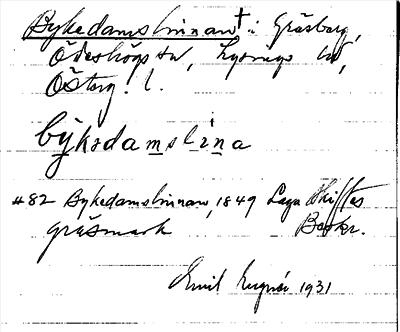 Bykedamslinnan† i Gråsberg,
Ödeshögs sn, Lysings hd,
Österg. l.
bȳkədamsliṉa
#82 Bykedamslinnan, 1849 Laga Skiftes
gräsmark Beskr.
Emil 1931